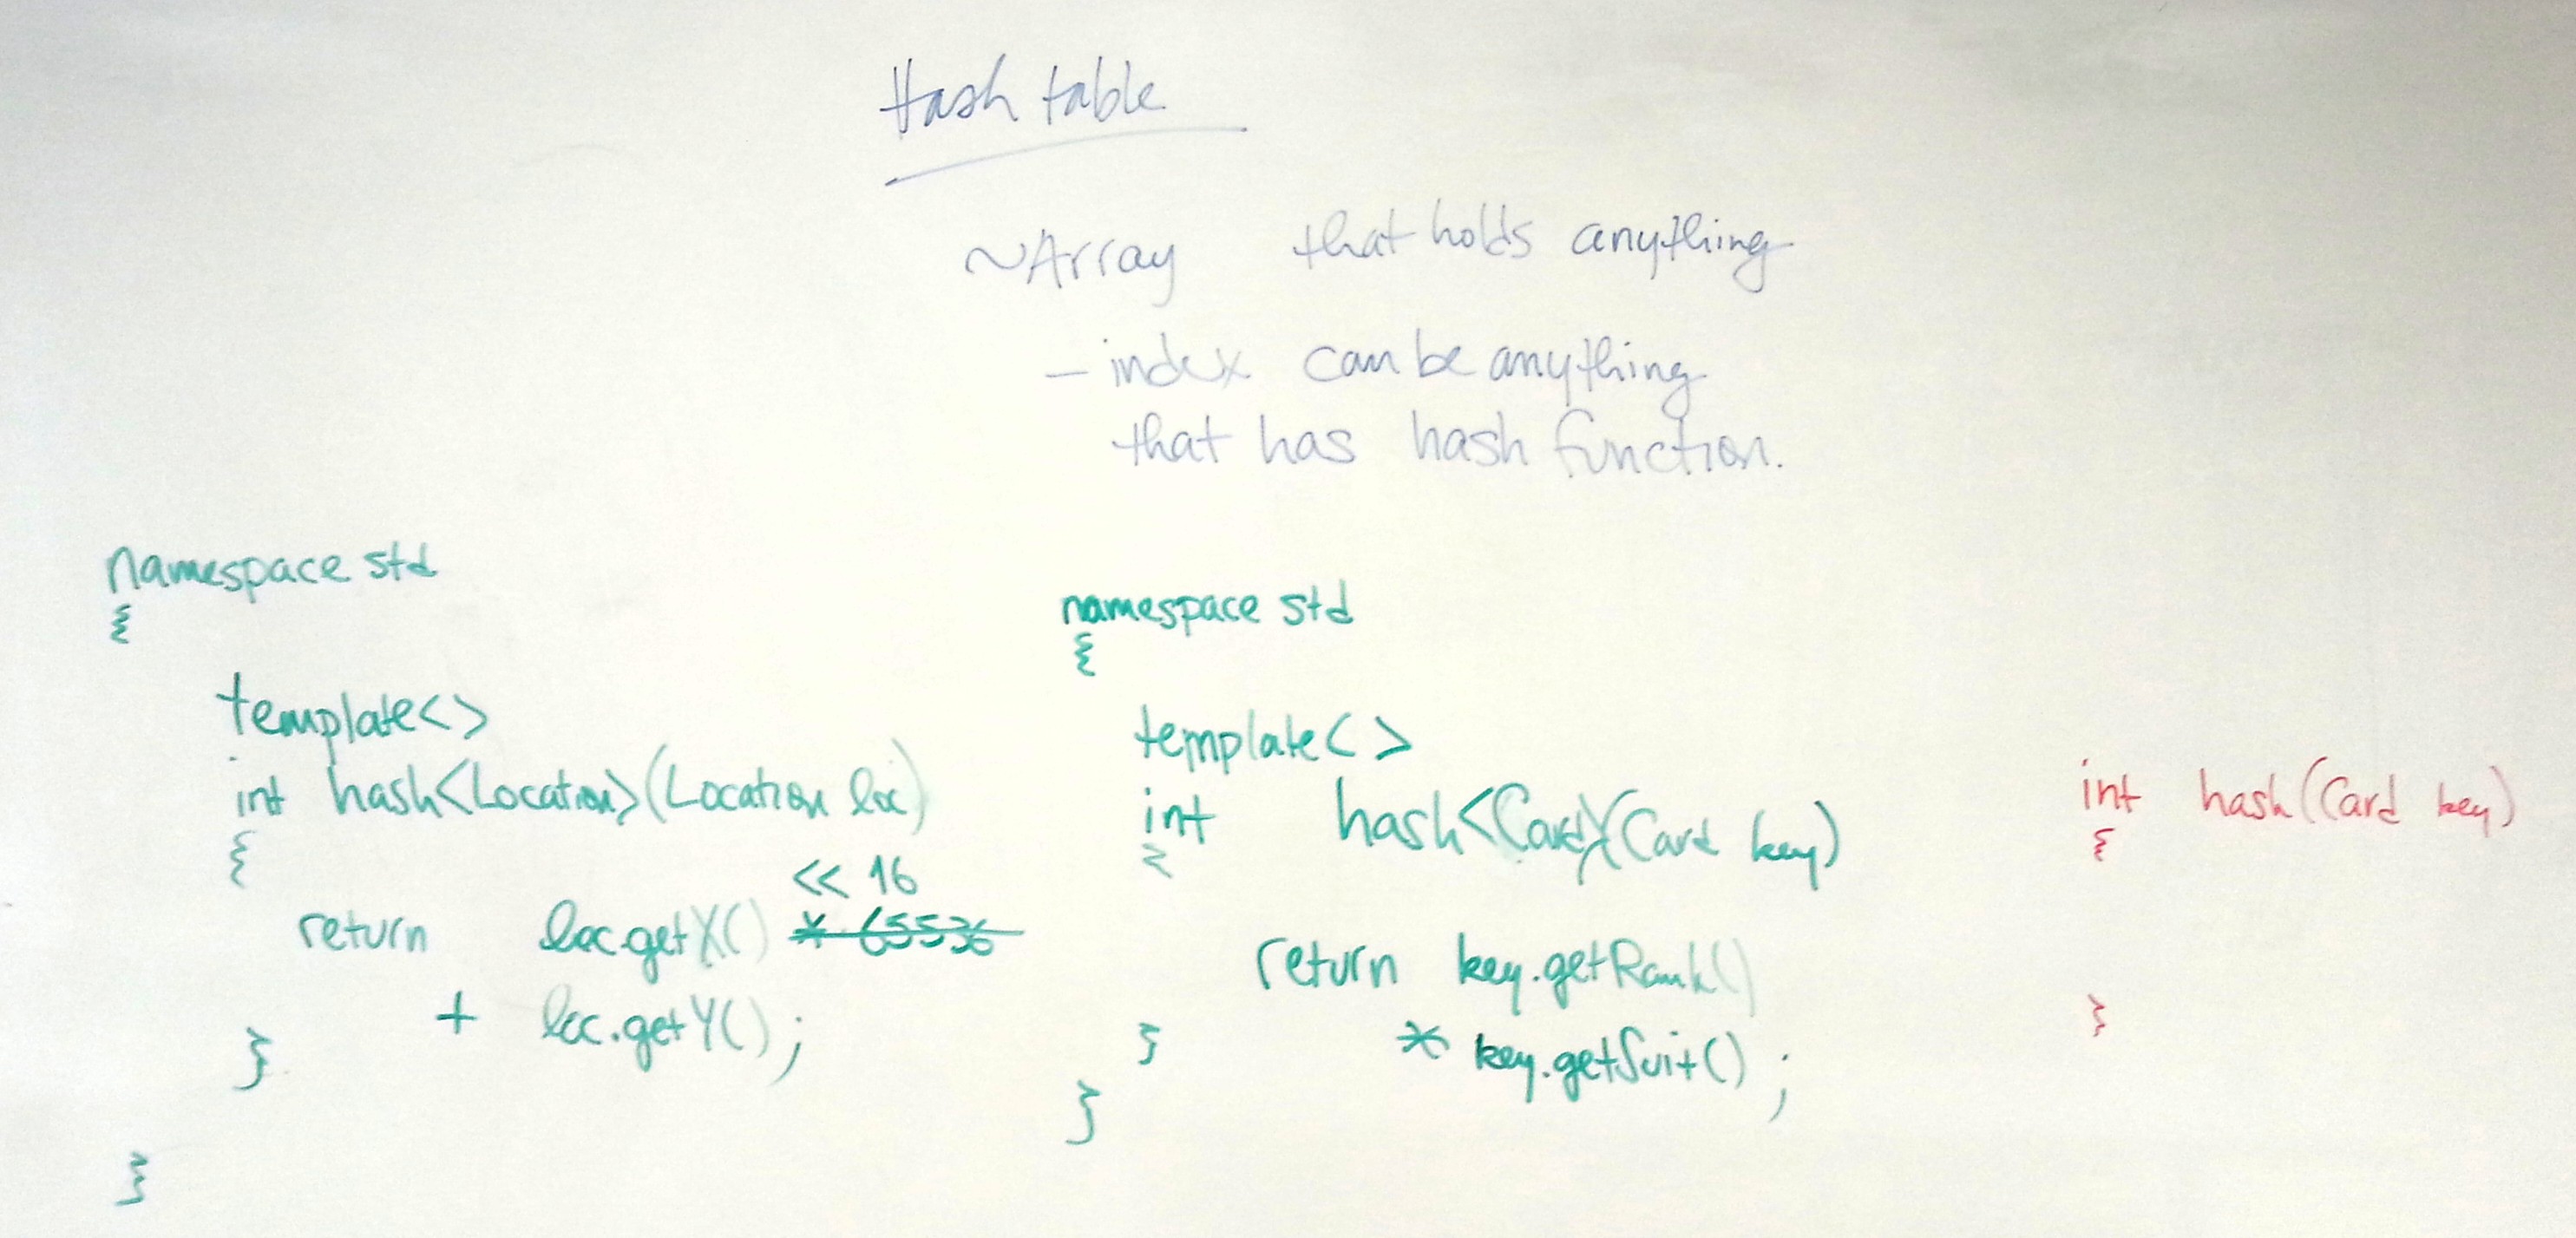 Hash table
~Array that holds anything
- index can be anything
that has hash function.
namespace std
{
template<>
int hash<Location>(Location loc)
{
<< 16
return loc.getX() * 65536
+ loc.getY();
}
}
namespace std
{
template<>
int hash<Card>(Card key)
{
return key.getRank()
* key.getSuit();
}
}
int hash(Card key)
{
}